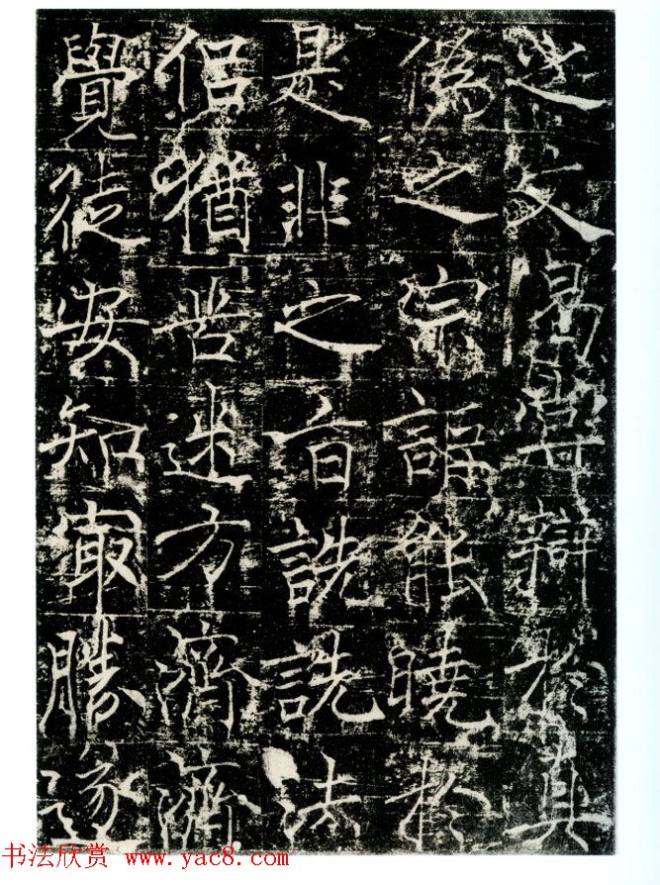 之文曷嘗辯於真
偽之宗詎能曉於
是非之旨詵詵法
侣猶苦迷方濟濟
覺徒安知㝡勝遂
书法欣赏 www.yac8.com